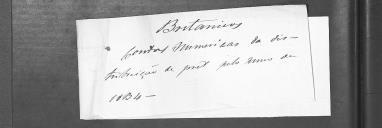 Britanicos
Contas numericas da dis-
tribuição de pret pelo anno de
1834 -